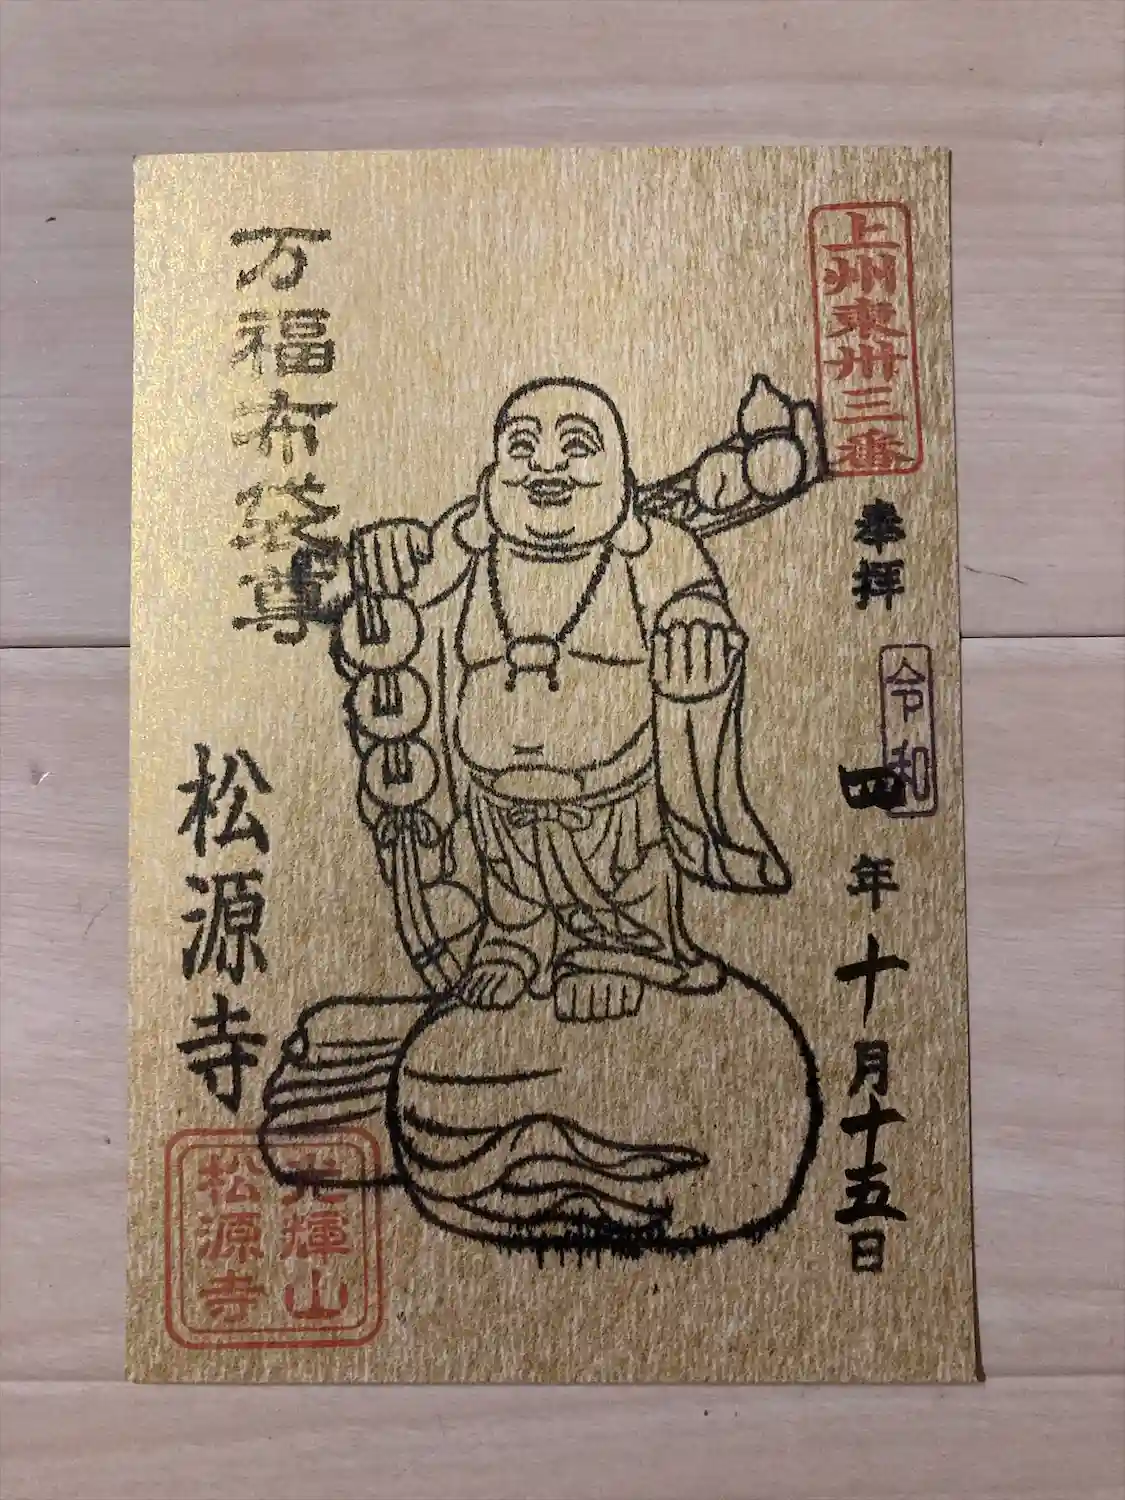 上州東卅三番
奉拝
令和
四年十月十五日
万福布袋尊
松源寺
光輝山
松源寺